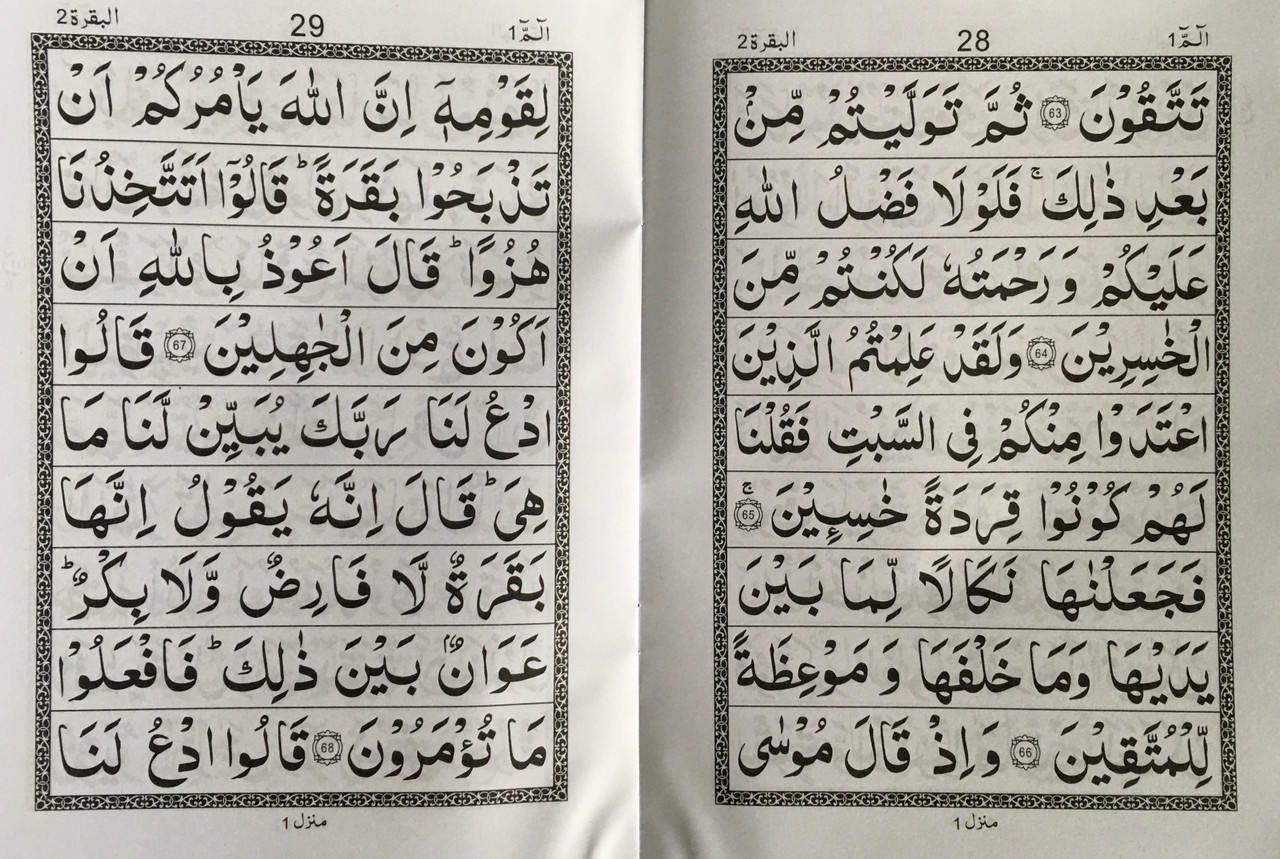 الٓمّٓ 1 28 البقرة 2
تَتَّقُوْنَ 63 ثُمَّ تَوَلَّيْتُمْ مِّنْۢ
بَعْدِ ذٰلِكَ ۚ فَلَوْلَا فَضْلُ اللّٰهِ
عَلَيْكُمْ وَرَحْمَتُهٗ لَكُنْتُمْ مِّنَ
الْخٰسِرِيْنَ 64 وَلَقَدْ عَلِمْتُمُ الَّذِيْنَ
اعْتَدَوْا مِنْكُمْ فِى السَّبْتِ فَقُلْنَا
لَهُمْ كُوْنُوْا قِرَدَةً خٰسِـِٕيْنَ ۚ 65
فَجَعَلْنٰهَا نَكَالًا لِّمَا بَيْنَ
يَدَيْهَا وَمَا خَلْفَهَا وَ مَوْعِظَةً
لِّلْمُتَّقِيْنَ 66 وَاِذْ قَالَ مُوْسٰى
منزل 1
الٓمّٓ 1 29 البقرة 2
لِقَوْمِهٖٓ اِنَّ اللّٰهَ يَاْمُرُكُمْ اَنْ
تَذْبَحُوْا بَقَرَةً ؕ قَالُوْٓا اَتَتَّخِذُنَا
هُزُوًا ؕ قَالَ اَعُوْذُ بِاللّٰهِ اَنْ
اَكُوْنَ مِنَ الْجٰهِلِيْنَ 67 قَالُوا
ادْعُ لَنَا رَبَّكَ يُبَيِّنْ لَّنَا مَا
هِىَ ؕ قَالَ اِنَّهٗ يَقُوْلُ اِنَّهَا
بَقَرَةٌ لَّا فَارِضٌ وَّلَا بِكْرٌ ؕ
عَوَانٌۢ بَيْنَ ذٰلِكَ ؕ فَافْعَلُوْا
مَا تُؤْمَرُوْنَ 68 قَالُوا ادْعُ لَنَا
منزل 1